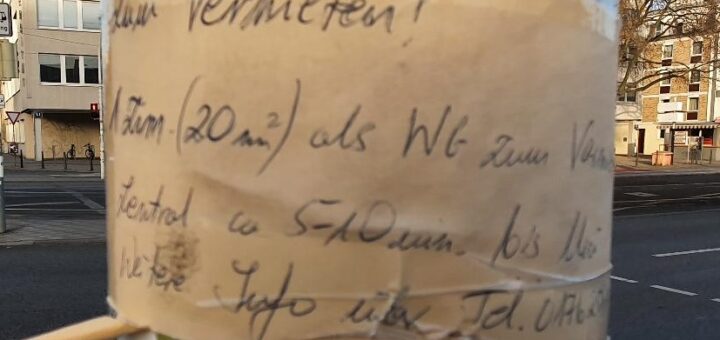 zum Vermieten!
1 Zim. (20 m²) als WG zum
Zentral ca 5-10 min. bis
Weitere Info über Tel. 0176